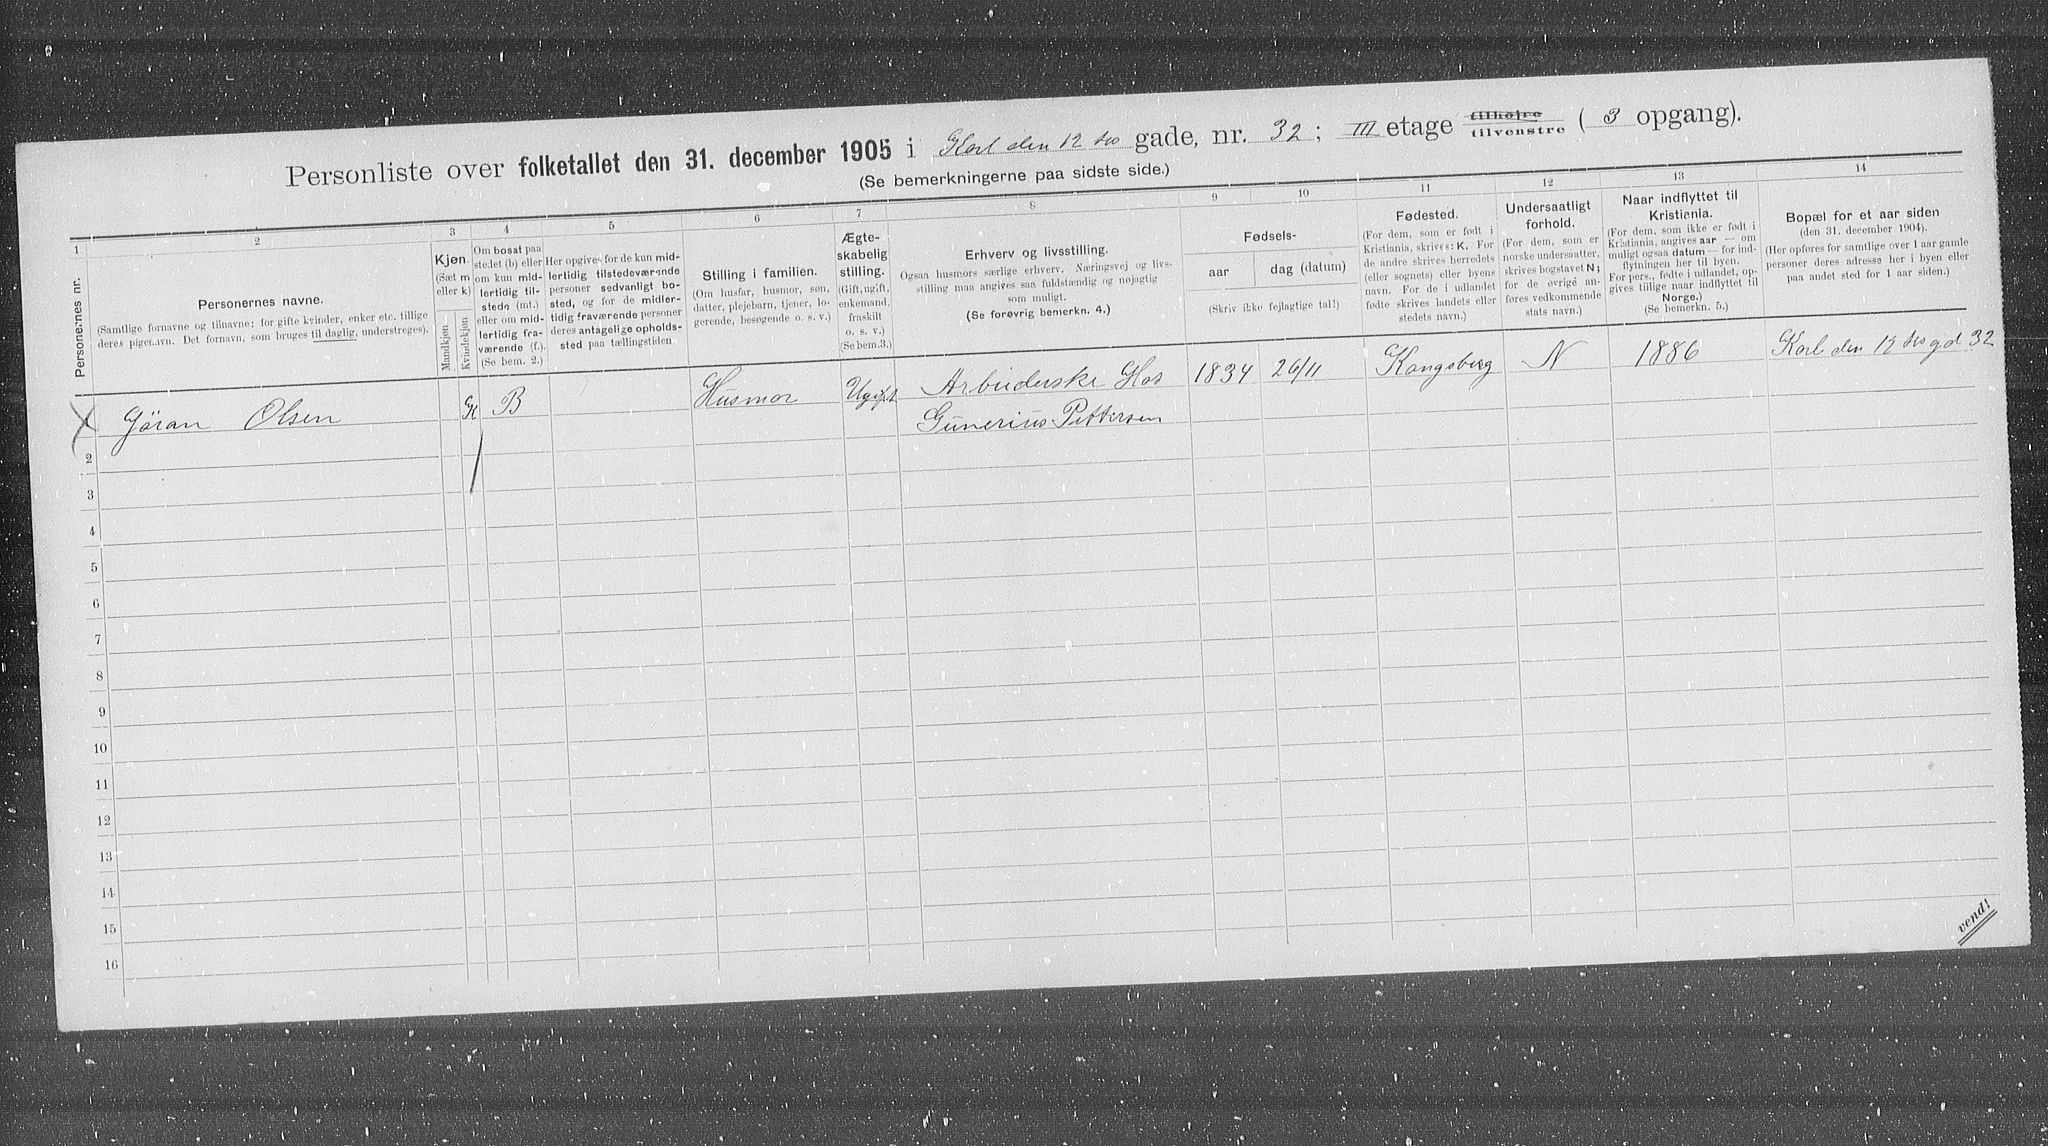 Personliste over folketallet den 31. december 1905 i Karl den 12 tes gade, nr. 32; III etage tilhøire tilvenstre ( 3 opgang).
(Se bemerkningerne paa sidste side.)
1 2 3 4 5 6 7 8 9 10 11 12 13 14
Personernes nr.
Personernes navne.
(Samtlige fornavne og tilnavne; for gifte kvinder, enker etc. tillige
deres pigenavn. Det fornavn, som bruges til daglig, understreges).
Kjøn.
(Sæt m
eller k)
Mandkjøn.
Kvindekjøn
Om bosat paa
stedet (b) eller
om kun mid-
lertidig til-
stede (mt.)
eller om mid-
lertidig fra-
værende (f.).
(Se bem. 2.)
Her opgives for de kun mid-
lertidig tilstedeværende
personer sedvanligt bo-
sted, og for de midler-
tidig fraværende personer
deres antagelige opholds-
sted paa tællingstiden
Stilling i familien.
(Om husfar, husmor, søn,
datter, plejebarn, tjener, lo-
gerende, besøgende o. s. v.)
Ægte-
skabelig
stilling.
(Gift, ugift,
enkemand,
fraskilt
o. s. v.)
(Se bem.3.)
Erhverv og livsstilling.
Ogsaa husmors særlige erhverv. Næringsvej og livs-
stilling maa angives saa fuldstændig og nøjagtig
som muligt.
(Se forøvrig bemerkn. 4.)
Fødsels-
aar dag (datum)
(Skriv ikke fejlagtige tal!)
Fødested.
(For dem, som er født i
Kristiania, skrives: K. For
de andre skrives herredets
(eller sognets) eller byens
navn. For de i udlandet
fødte skrives landets eller
stedets navn.)
Undersaatligt
forhold.
(For dem, som er
norske undersaatter,
skrives bogstavet N;
for de øvrige an-
føres vedkommende
stats navn.)
Naar indflyttet til
Kristiania.
(For dem, som ikke er født i
Kristiania, angives aar — om
muligt ogsaa datum — for ind-
flytningen her til byen.
For pers., fødte i udlandet, op-
gives tillige naar indflyttet til
Norge.)
(Se bemerkn. 5.)
Bopæl for et aar siden
(den 31. december 1904).
(Her opføres for samtlige over 1 aar gamle
personer deres adresse her i byen eller
paa andet sted for 1 aar siden.)
Gøran Olsen K B Husmor Ugift Arbiderske Hos 1834 26/11 Kongsberg N 1886 Karl den 12 tes gd 32
Gunerius Pettersen
2
3
4
5
6
7
8
9
10
11
12
13
14
15
16
vend!